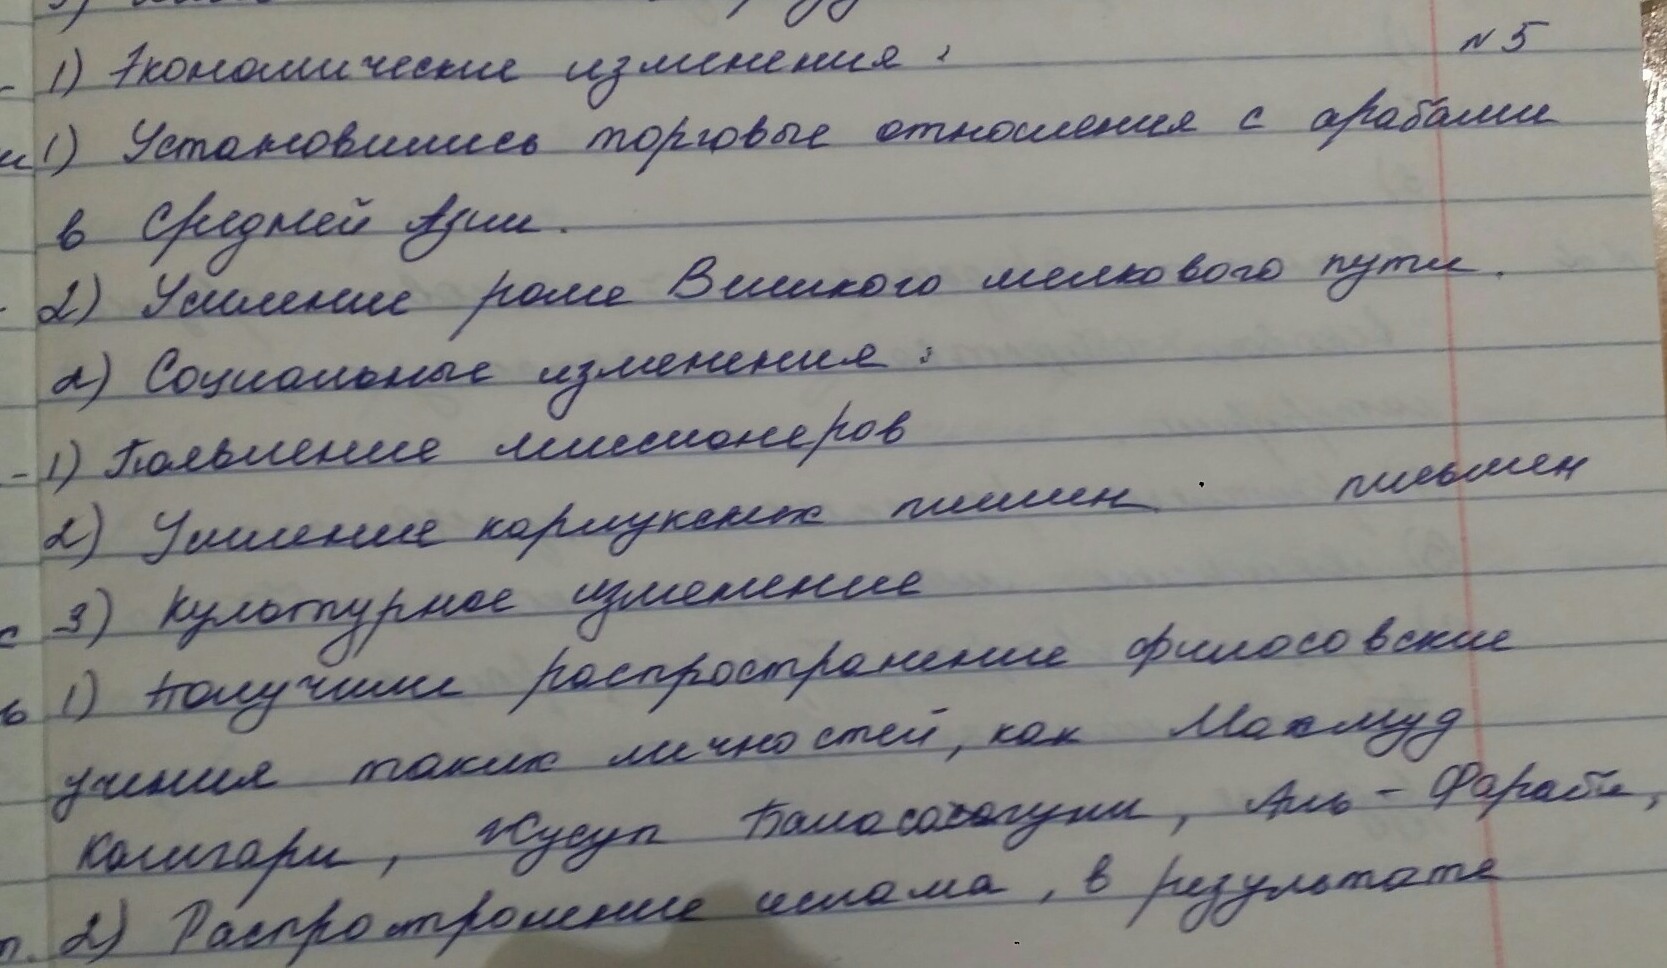 1) Экономические изменения: №5
1) Установились торговые отношения с арабами
в Средней Азии.
2) Усиление роли Великого шелкового пути.
2) Социальные изменения:
-1) Появление миссионеров
2) Усиление карлукских племен письмен
3) Культурное изменение
1) Получили распространение филосовские
учения таких личностей, как Махмуд
Кашгари, Жусуп Баласасагуни, Аль-Фараби,
2) Распространение ислама, в результате